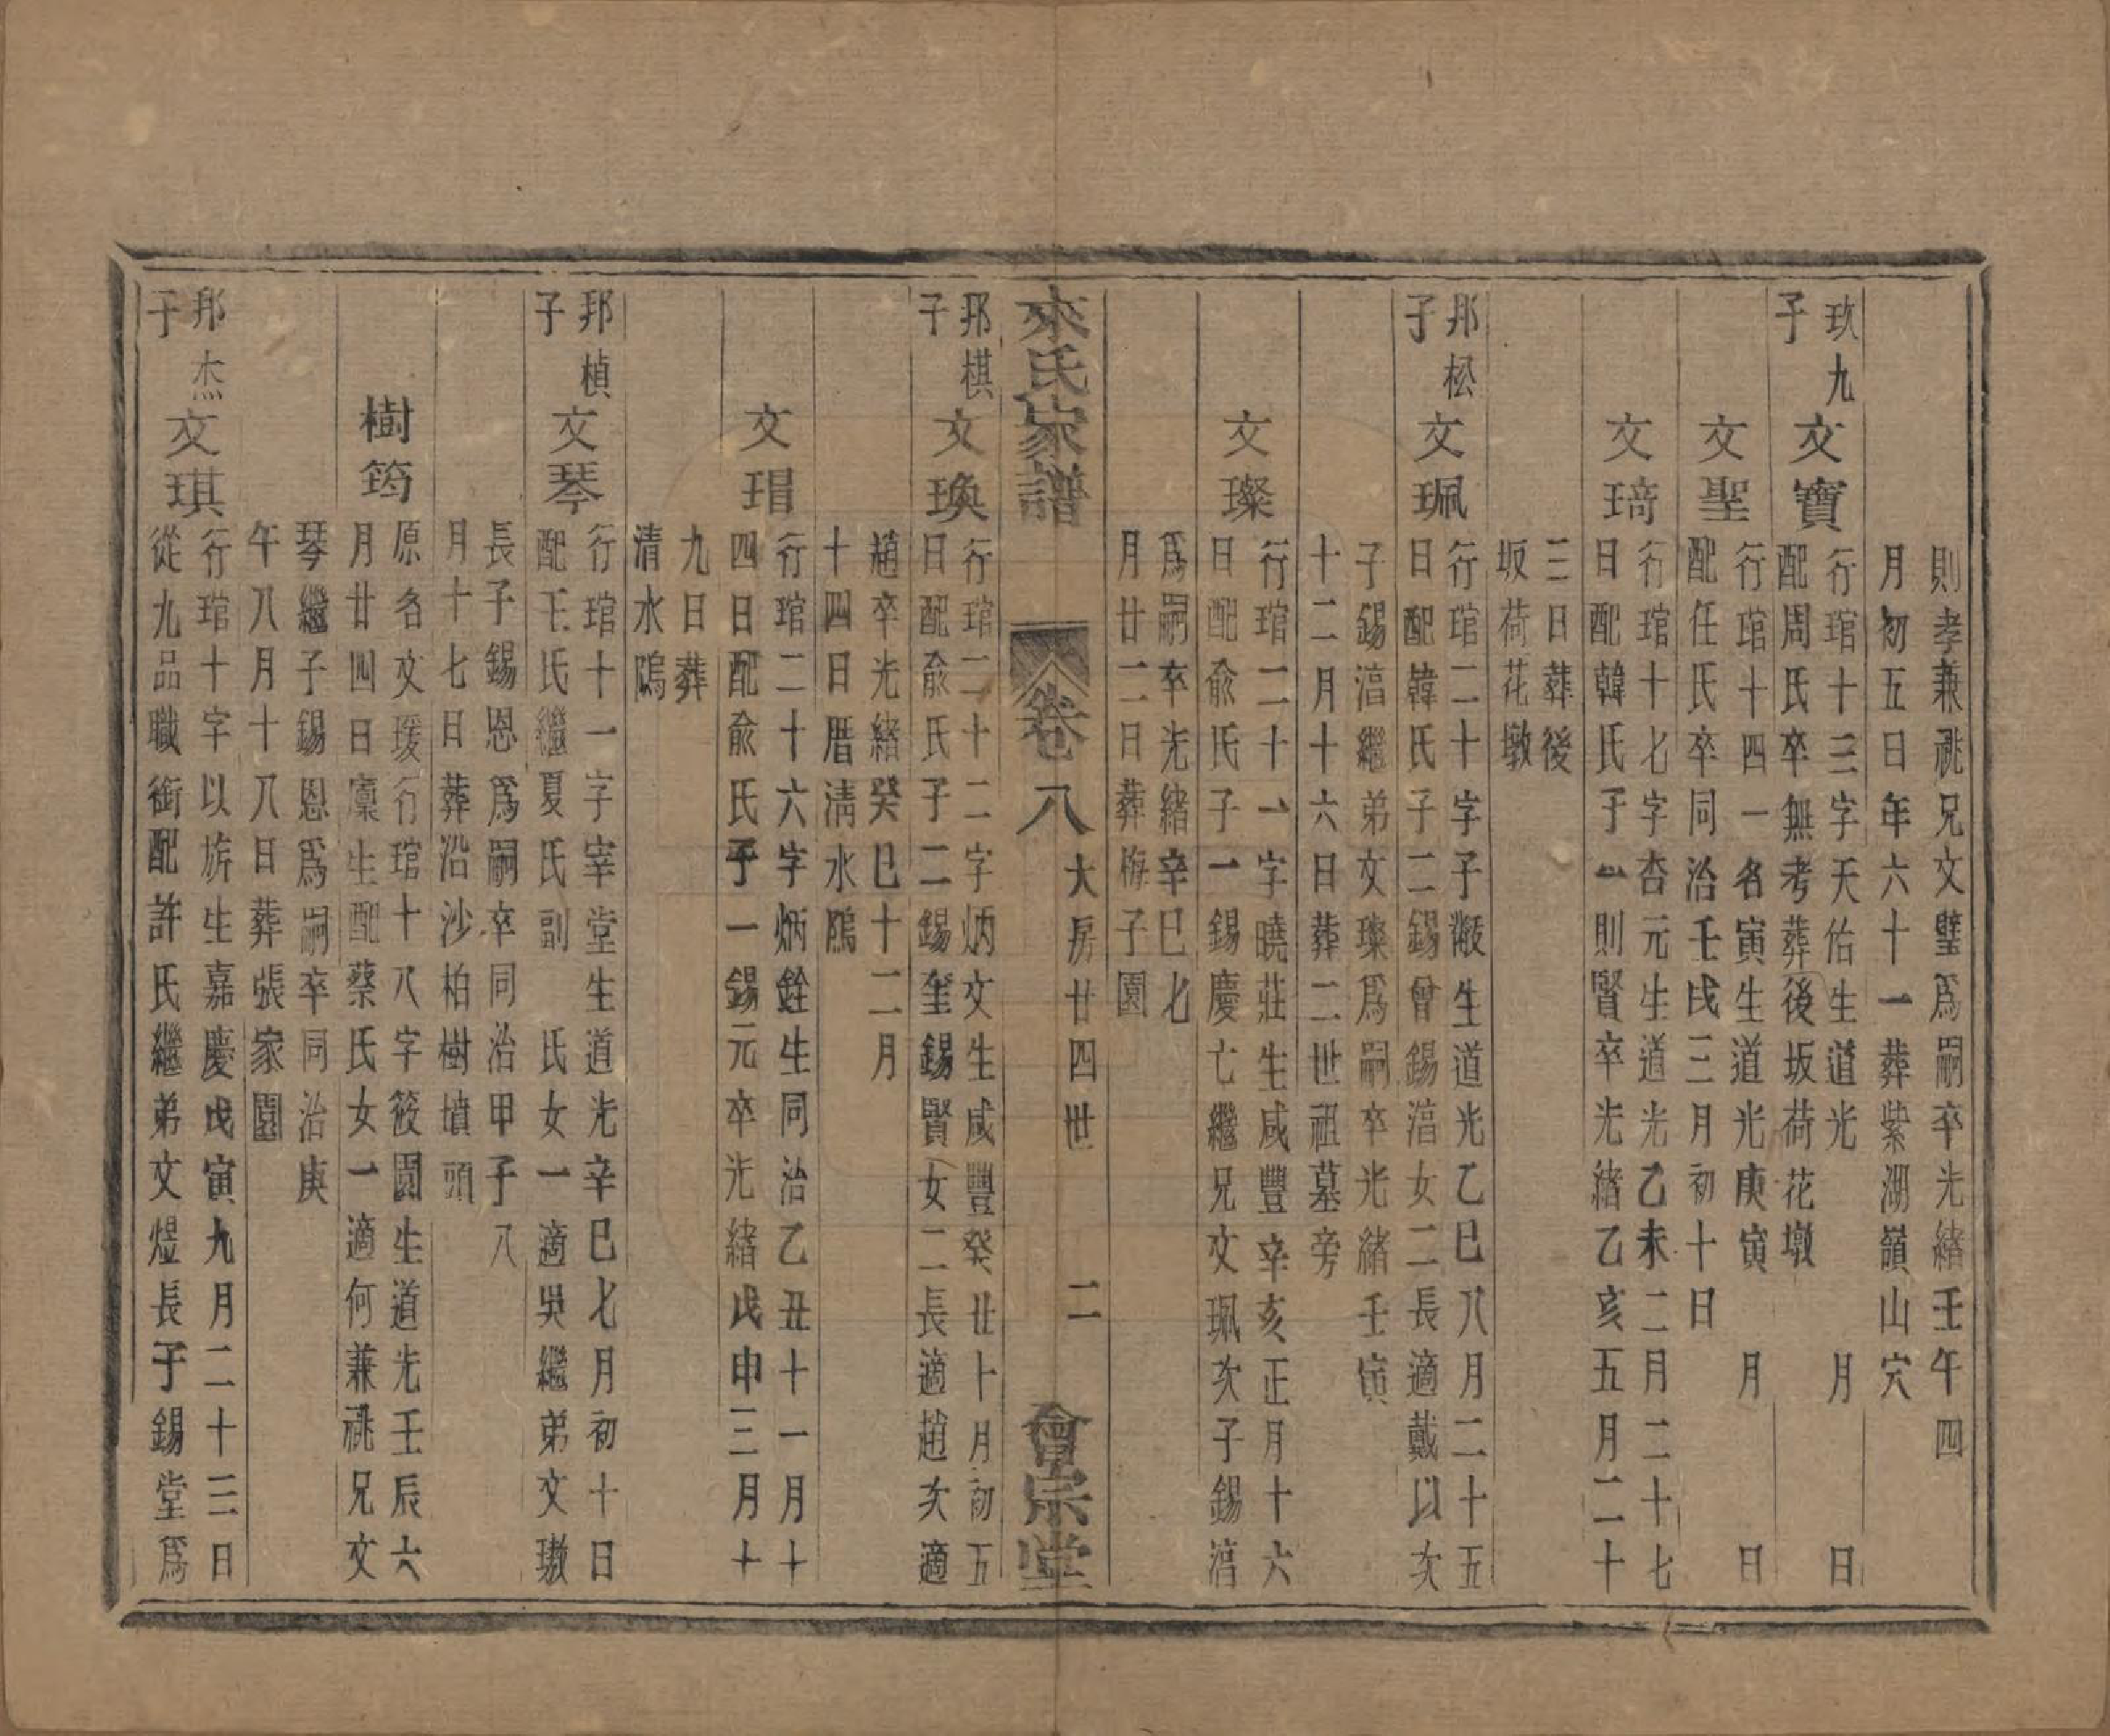 則孝兼祧兄文璧爲嗣卒光緒壬午四
月初五日年六十一葬紫湖嶺山穴
玖九子
文寶
行琯十三字天佑生道光　月　日
配周氏卒無考葬後坂荷花墩
文聖
行琯十四一名寅生道光庚寅　月　日
配任氏卒同治壬戌三月初十日
文琦
行琯十七字杏元生道光乙未二月二十七
日配韓氏子一則賢卒光緒乙亥五月二十
三日葬後
坂荷花墩
邦松子
文珮
行琯二十字子敝生道光乙巳八月二十五
日配韓氏子二錫曾錫湻女二長適戴以次
子錫湻繼弟文璨爲嗣卒光緒壬寅
十二月十六日葬二世祖墓旁
文璨
行琯二十一字曉莊生咸豐辛亥正月十六
日配俞氏子一錫慶亡繼兄文珮次子錫湻
爲嗣卒光緒辛巳七
月廿二日葬梅子園
來氏家譜
卷八
大房廿四世
二
會宗堂
邦棋子
文瑍
行琯二十二字炳文生咸豐癸丑十月初五
日配俞氏子二錫奎錫賢女二長適趙次適
趙卒光緒癸巳十二月
十四日厝清水隖
文琩
行琯二十六字炳銓生同治乙丑十一月十
四日配俞氏子一錫元卒光緒戊申三月十
九日葬
清水隖
邦楨子
文琴
行琯十一字宰堂生道光辛巳七月初十日
配王氏繼夏氏副　氏女一適吳繼弟文璈
長子錫恩爲嗣卒同治甲子八
月十七日葬沿沙柏樹墳頭
樹筠
原名文瑗行琯十八字筱園生道光壬辰六
月廿四日廪生配蔡氏女一適何兼祧兄文
琴繼子錫恩爲嗣卒同治庚
午八月十八日葬張家園
邦杰子
文琪
行琯十字以旂生嘉慶戊寅九月二十三日
從九品職銜配許氏繼弟文煜長子錫堂爲